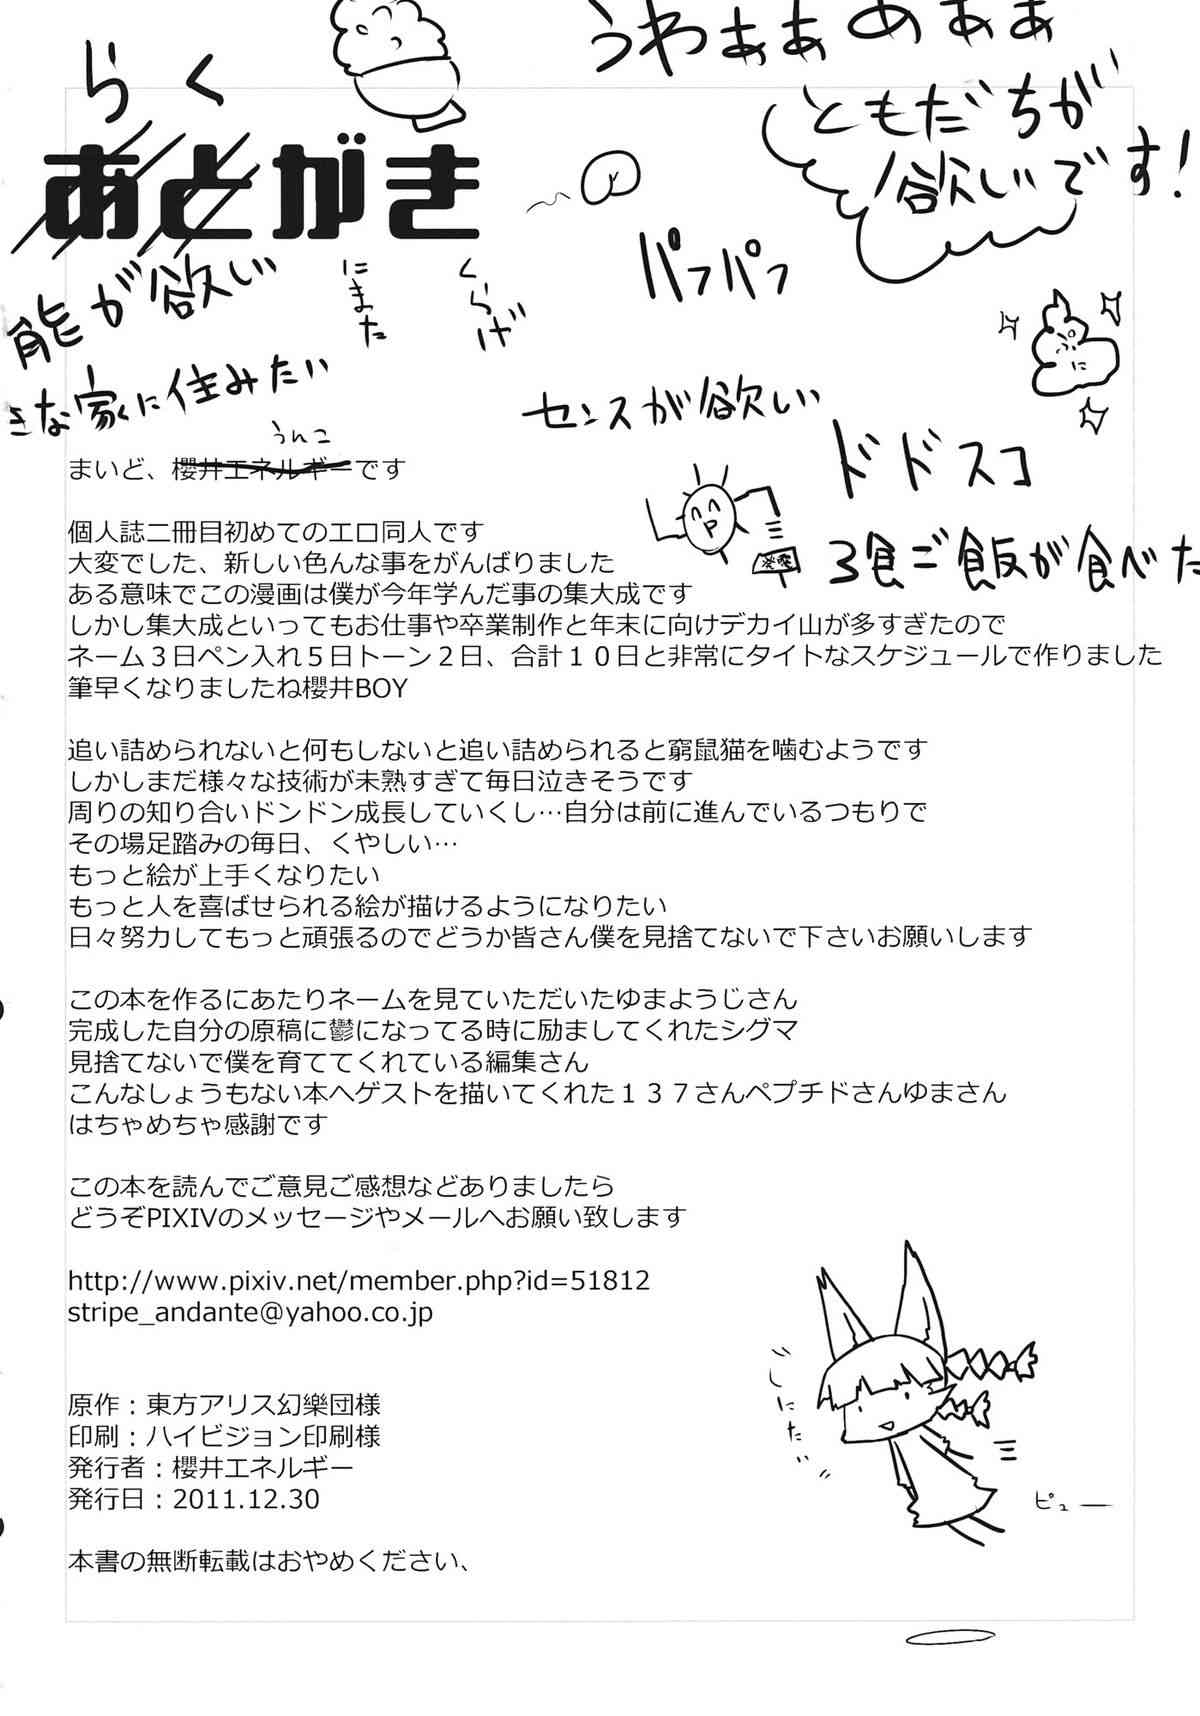 うわぁぁぁぁぁ
らく
ともだちが
欲しいです!
あとがき
パフパフ
能が欲しい
にまた
くらげ
きな家に住みたい
センスが欲しい
ドドスコ
うんこ
まいど、櫻井エネルギーです
3食ご飯が食べた
個人誌二冊目初めてのエロ同人です
大変でした、新しい色んな事をがんばりました
ある意味でこの漫画は僕が今年学んだ事の集大成です
しかし集大成といってもお仕事や卒業制作と年末に向けデカイ山が多すぎたので
ネーム３日ペン入れ５日トーン２日、合計１０日と非常にタイトなスケジュールで作りました
筆早くなりましたね櫻井BOY
追い詰められないと何もしないと追い詰められると窮鼠猫を噛むようです
しかしまだ様々な技術が未熟すぎて毎日泣きそうです
周りの知り合いドンドン成長していくし…自分は前に進んでいるつもりで
その場足踏みの毎日、くやしい…
もっと絵が上手くなりたい
もっと人を喜ばせられる絵が描けるようになりたい
日々努力してもっと頑張るのでどうか皆さん僕を見捨てないで下さいお願いします
この本を作るにあたりネームを見ていただいたゆまようじさん
完成した自分の原稿に鬱になってる時に励ましてくれたシグマ
見捨てないで僕を育ててくれている編集さん
こんなしょうもない本へゲストを描いてくれた１３７さんペプチドさんゆまさん
はちゃめちゃ感謝です
この本を読んでご意見ご感想などありましたら
どうぞPIXIVのメッセージやメールへお願い致します
http://www.pixiv.net/member.php?id=51812
stripe_andante@yahoo.co.jp
"しにたい"
原作：東方アリス幻樂団様
印刷：ハイビジョン印刷様
発行者：櫻井エネルギー
発行日：2011.12.30
ピューー
本書の無断転載はおやめください、